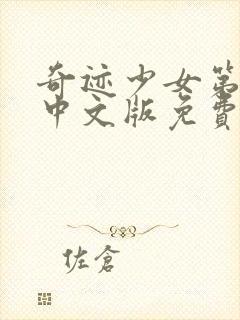 奇迹少女第
中文版免費
佐倉